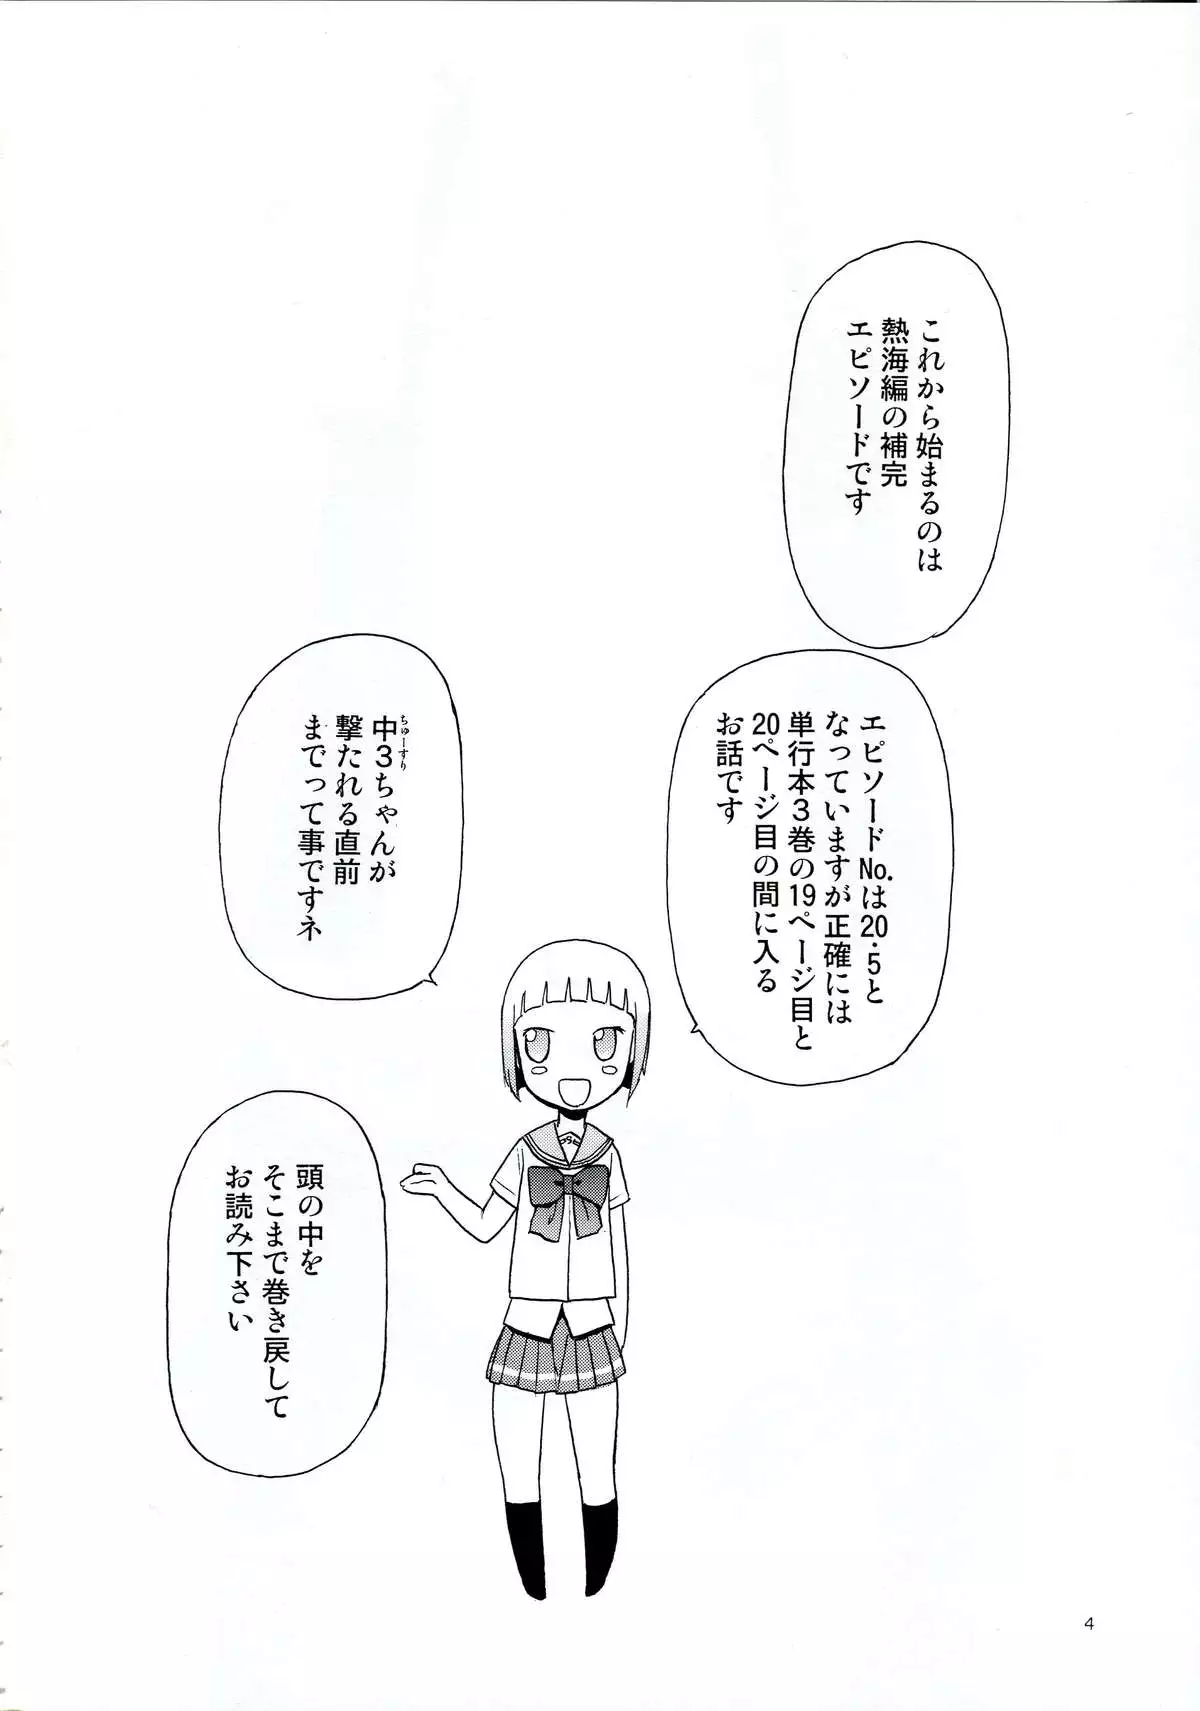 これから始まるのは
熱海編の補完
エピソードです
エピソードNo.は20・5と
なっていますが正確には
単行本3巻の19ページ目と
20ページ目の間に入る
お話です
ちゅーすり
中3ちゃんが
撃たれる直前
までって事ですネ
頭の中を
そこまで巻き戻して
お読み下さい
4